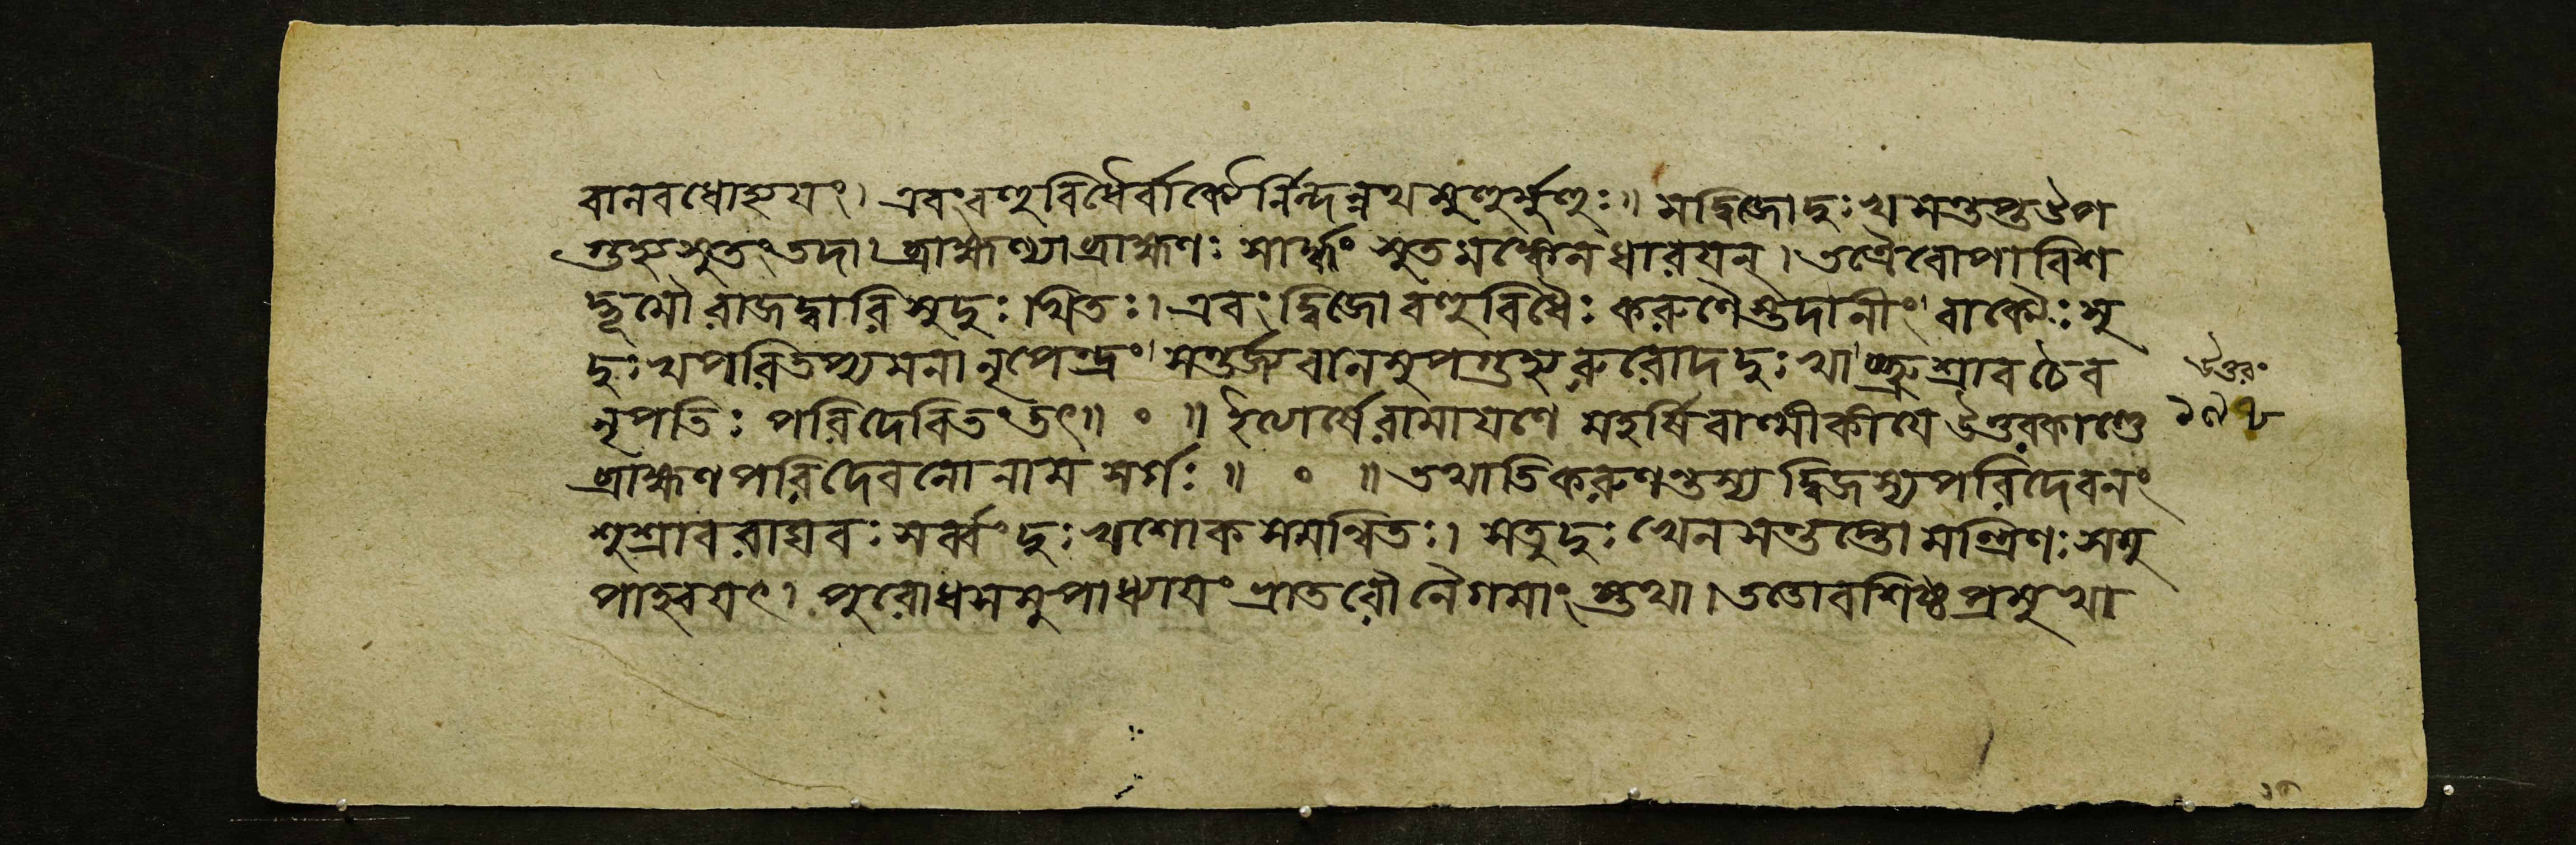 বালবধোহ্যয়ং। এবংবহুবিধৈর্বাক্যৈর্নিন্দন্নথমুহুর্মুহুঃ॥ সদ্বিজোদুঃখসন্তপ্তউপ
গুহ্যসুতংতদা। ব্রাহ্মণ্যাব্রাহ্মণঃ সার্দ্ধং সুতমঙ্কেনধারয়ন্। তত্রৈবোপাবিশ
দ্ভূমৌরাজদ্বারিসুদুঃখিতঃ। এবংদ্বিজোবহুবিধৈঃ করুণৈস্তদানীং বাক্যৈঃ সু
দুঃখপরিতপ্যমনানৃপেন্দ্রং সন্তর্জবালমুপগুহ্যরুরোদদুঃখা শুশ্রাবচৈব
নৃপতিঃ পরিদেবিতংতৎ॥ ০ ॥ ইত্যার্ষেরামায়ণে মহর্ষিবাল্মীকীয়ে উত্তরকাণ্ডে
ব্রাহ্মণপরিদেবনোনাম সর্গঃ॥ ০ ॥ তথাতিকরুণন্তস্য দ্বিজস্যপরিদেবনং
শুশ্রাবরাঘবঃ সর্ব্বং দুঃখশোকসমন্বিতঃ। সতুদুঃখেনসন্তপ্তো মন্ত্রিণঃ সমু
পাহ্বয়ৎ। পুরোধসমুপাধ্যায়ং ভ্রাতরৌনৈগমাংস্তথা। ততোবশিষ্ঠপ্রমুখা
উত্তরং